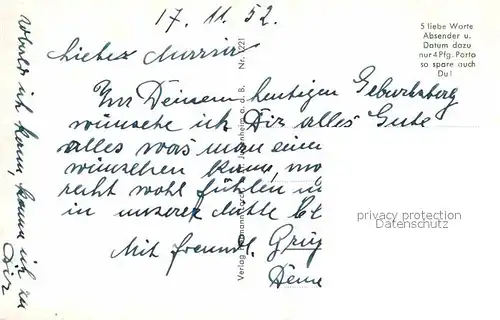 17. 11. 52.
5 liebe Worte
Absender u.
Datum dazu
nur 4 Pfg. Porto
so spare auch
Du!
Liebes
Zu Deinem heutigen Geburtstag
wünsche ich Dir alles Gute
alles was man einem
wünschen kann,
recht wohl fühlen
in unserer Mitte
Mit freundl. Grüß
Deine
Wobald ich kann, komme ich zu
Dir
Verlag
Jugenheim a. d. B. Nr. 1221
privacy protection
Datenschutz